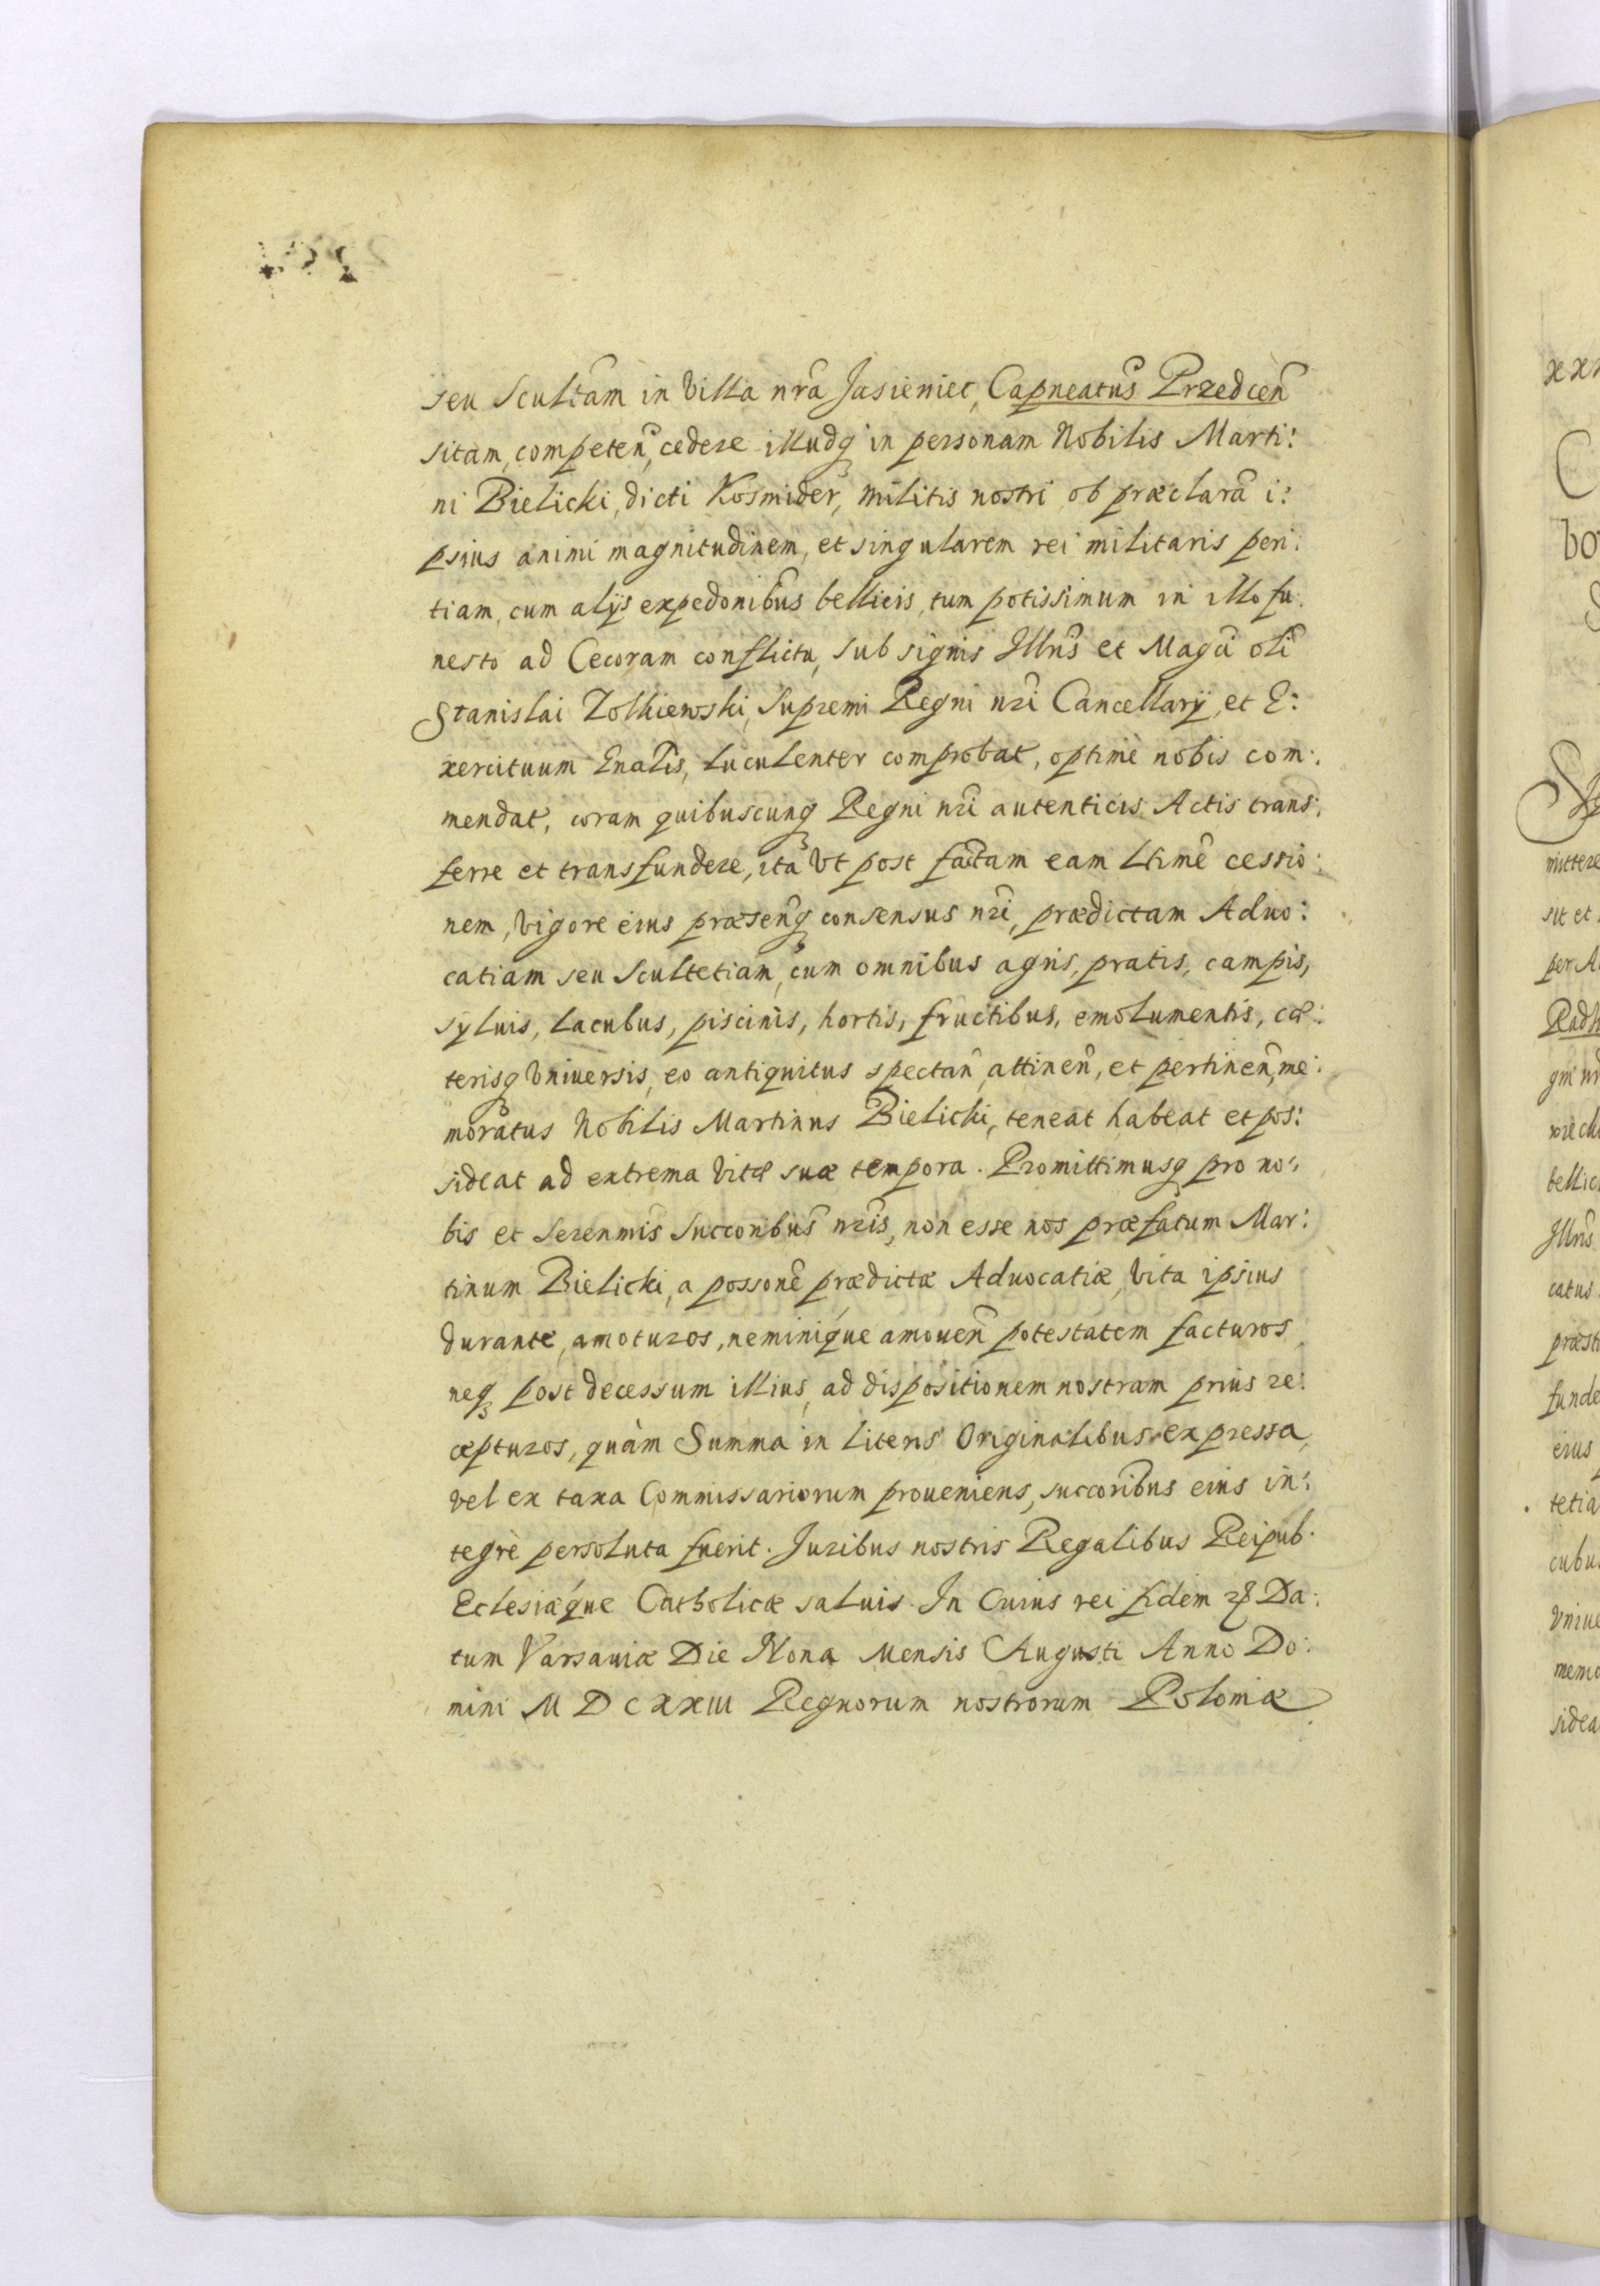 seu Scultam in Villa nra Jasieniec, Capneatus Przedcen
sitam, competen, cedere illudq in personam Nobilis Marti:
ni Bielicki, dicti Kosmider, Militis nostri ob præclara i:
psius animi magnitudinem, et singularem rei militaris peri:
tiam, cum alijs expedonibus bellicis, tum potissimum in illo fu:
nesto ad Cecoram conflictu, sub signis Illris et Magci oli
Stanislai Zolkiewski, Supremi Regni nri Cancellarij, et E:
xercituum Gnalis, luculenter comprobat, optime nobis com:
mendat, coram quibuscunq Regni nri autenticis Actis trans:
ferre et transfundere, ita Vt post factam eam Ltime cessio:
nem, Vigore eius præsenq consensus nri, prædictam Aduo:
catiam seu Scultetiam, cum omnibus agris, pratis, campis,
syluis, lacubus, piscinis, hortis, fructibus, emolumentis, cæ:
terisq Vniuersis, eo antiquitus spectan, attinen, et pertinen, me:
moratus Nobilis Martinus Bielicki, teneat habeat et pos:
sideat ad extrema Vitæ suæ tempora. Promittimusq pro no:
bis et Serenmis Succoribus nris, non esse nos præfatum Mar:
tinum Bielicki, a possone prædictæ Aduocatiæ, Vita ipsius
durante, amoturos, neminique amouen potestatem facturos,
neq post decessum illius, ad dispositionem nostram prius re:
cepturos, quàm Summa in literis Originalibus expressa,
vel ex taxa Commissariorum proueniens, succoribus eius in:
tegrè persoluta fuerit. Juribus nostris Regalibus Reipub.
Eclesiæque Catholicæ saluis. In Cuius rei fidem Da:
tum Varsauiæ Die Nona Mensis Augusti Anno Do:
mini M D C XXIII Regnorum nostrorum Poloniæ